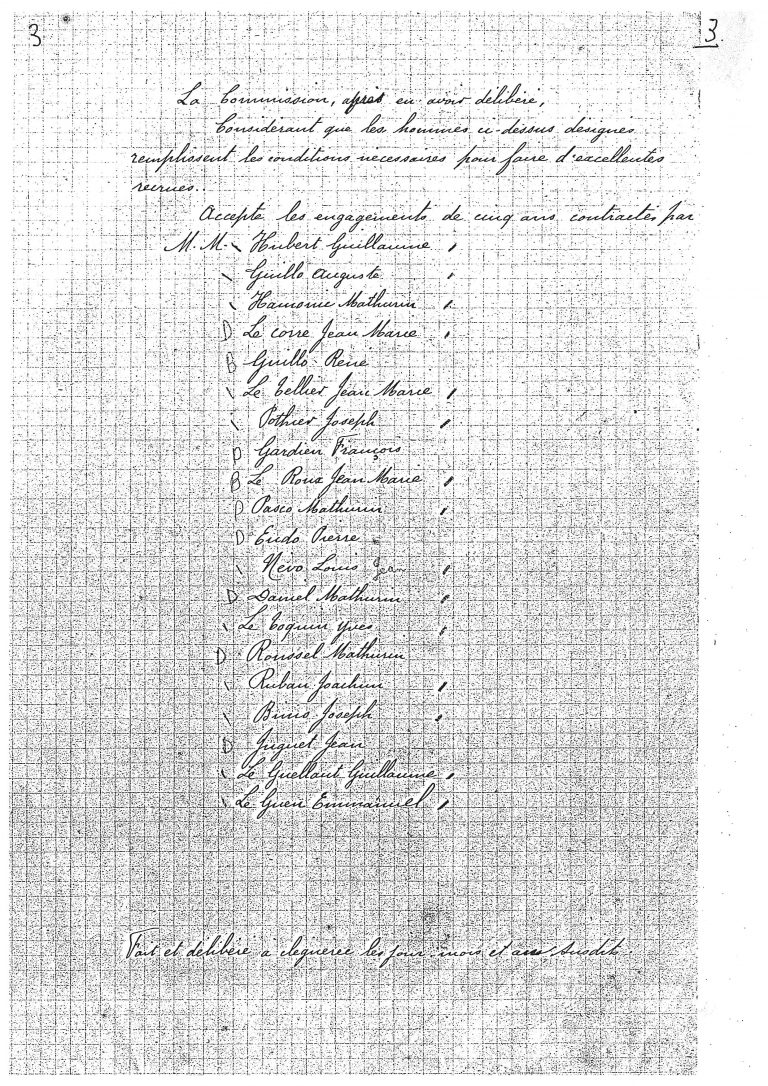 3
3.
La Commission, après en avoir délibéré,
Considérant que les hommes ci-dessus désignés
remplissent les conditions nécessaires pour faire d'excellentes
recrues..
Accepte les engagements de cinq ans contractés par
M. M. \ Hubert Guillaume
\ Guillo Auguste
\ Hamonic Mathurin
D Le corre Jean Marie
B Guillo René
\ Le Tellier Jean Marie
\ Pothier Joseph
D Gardien François
B Le Roux Jean Marie
D Pasco Mathurin
D Eudo Pierre
\ Nevo Louis Jean
D Daniel Mathurin
\ Le Toquin Yves
D Roussel Mathurin
\ Ruban Joachim
\ Binio Joseph
D Juguet Jean
\ Le Guellaut Guillaume
\ Le Guen Emmanuel
Fait et délibéré à cleguerec les jour, mois et ans susdits